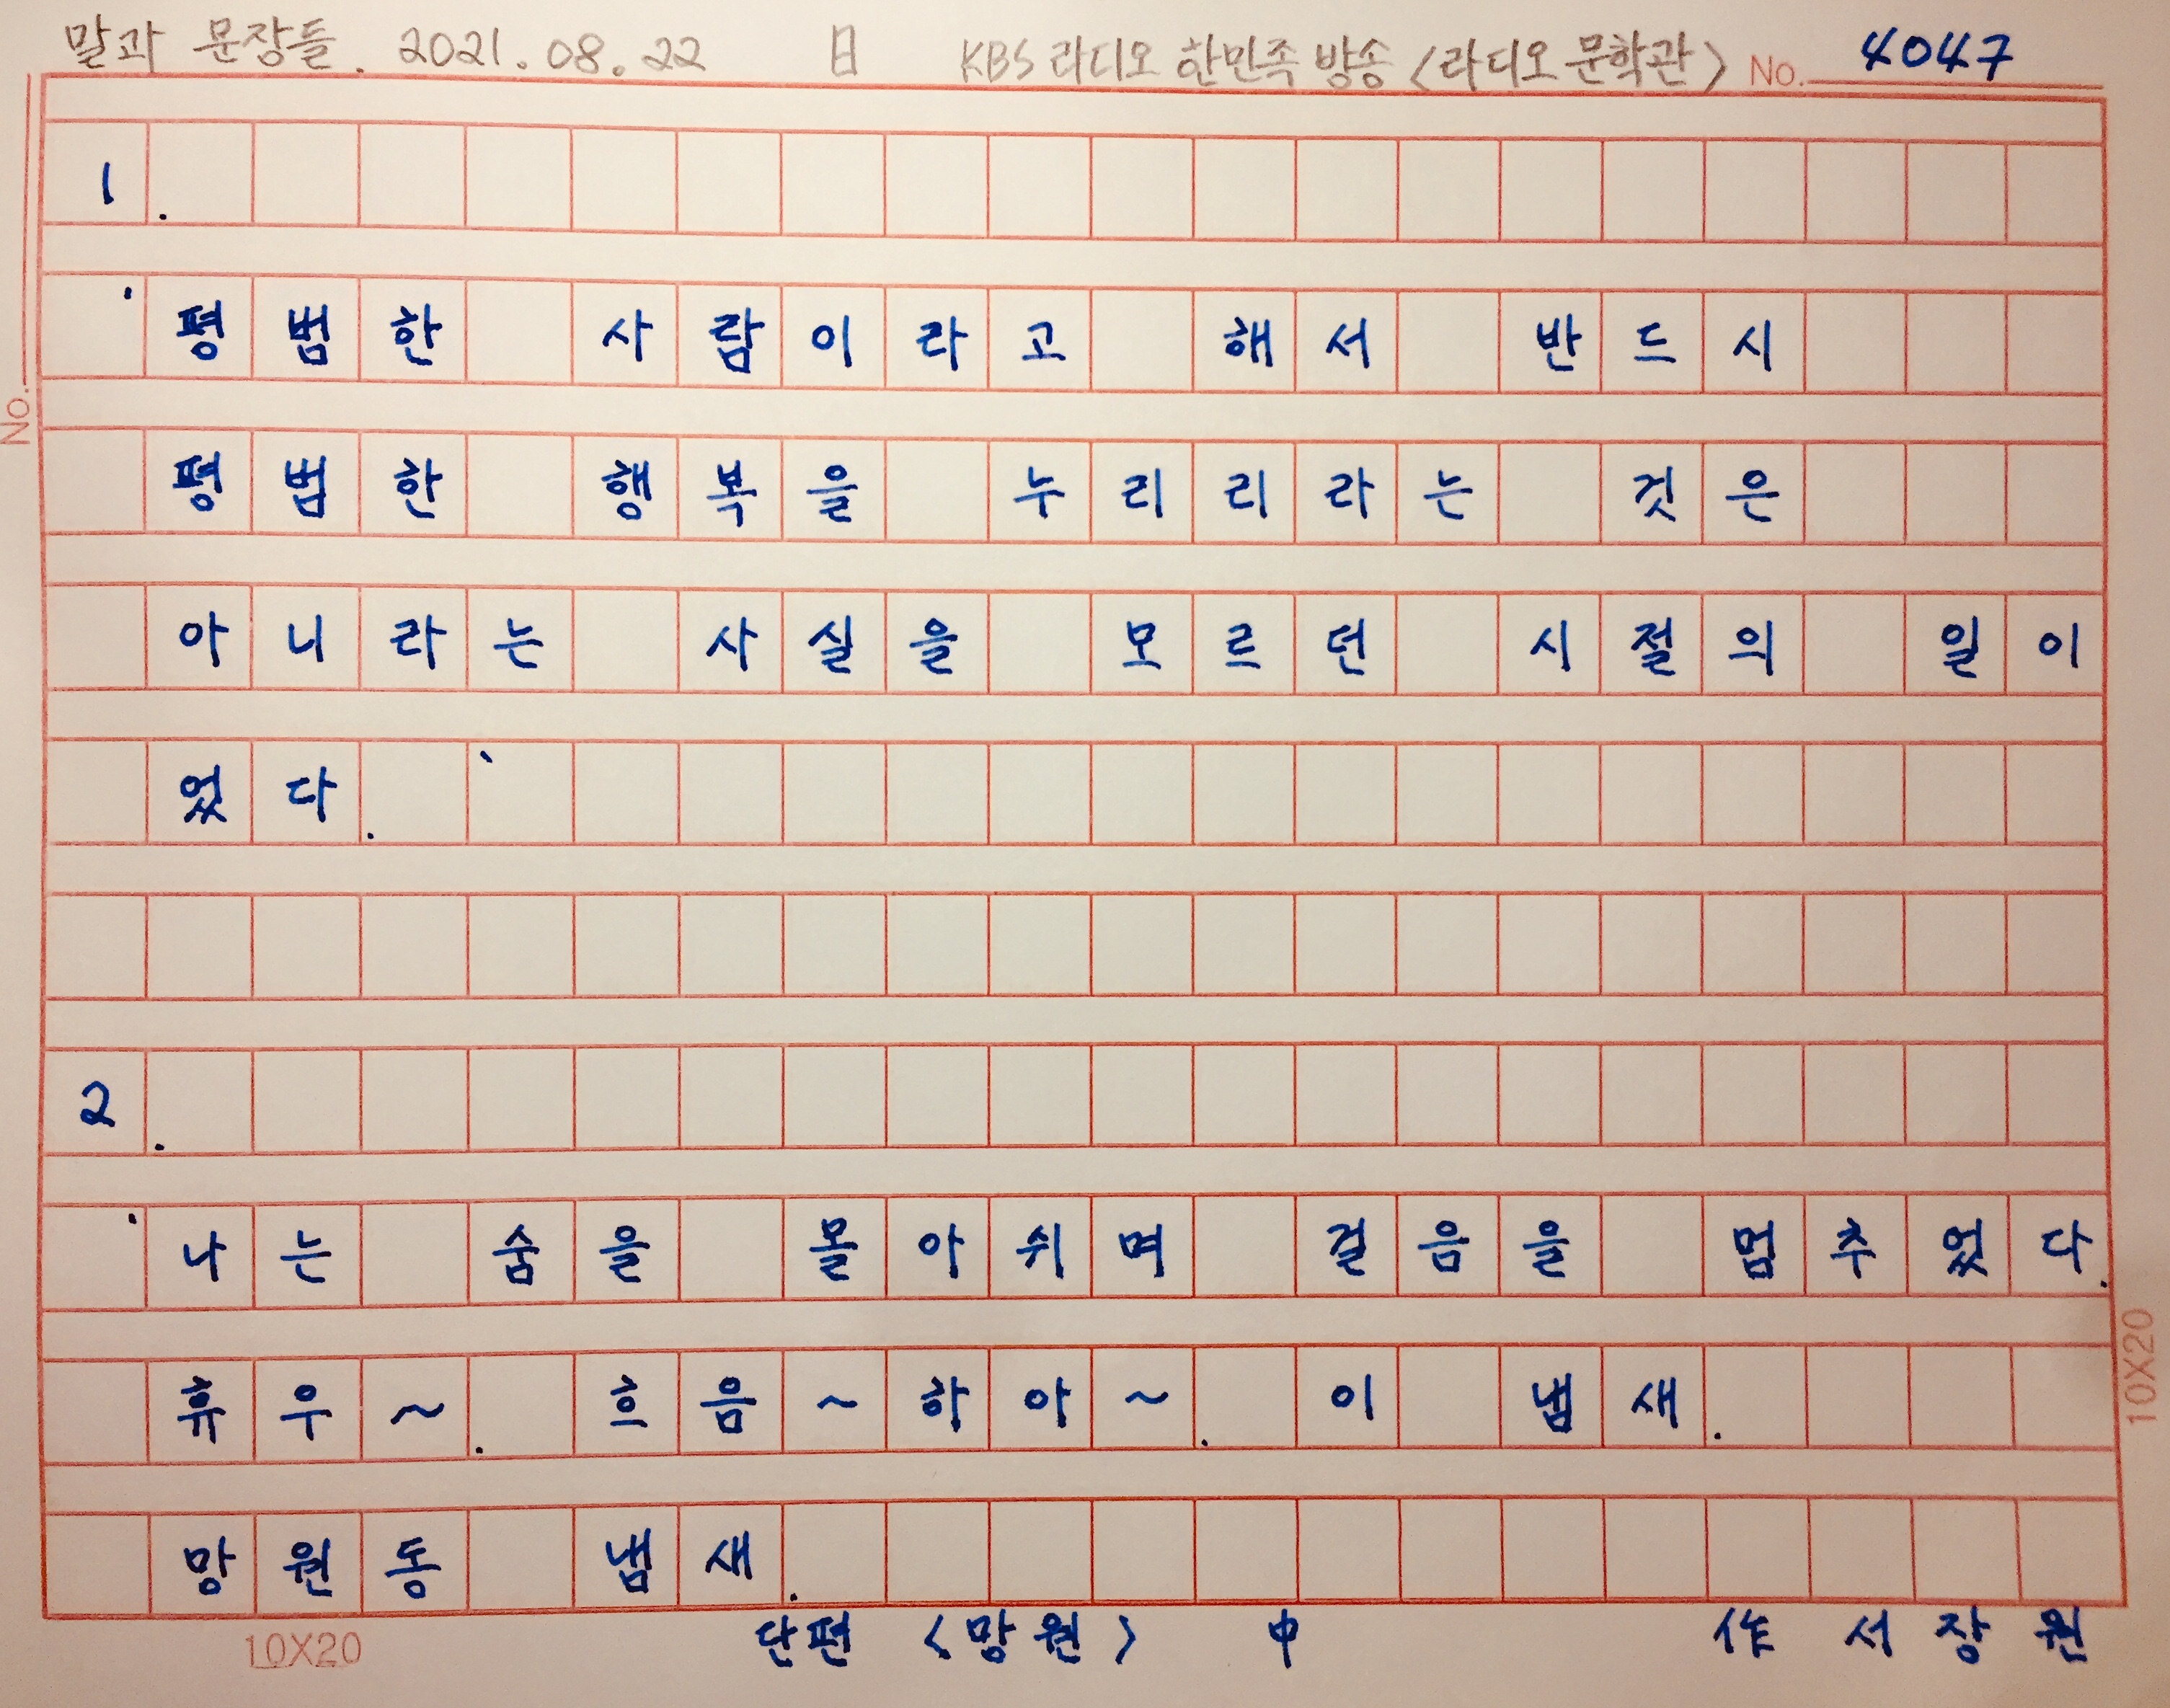 말과 문장들. 2021.08.22 日 KBS 라디오 한민족 방송 <라디오 문학관> No. 4047
1.
'평범한 사람이라고 해서 반드시
No.
평범한 행복을 누리리라는 것은
아니라는 사실을 모르던 시절의 일이
었다.'
2.
'나는 숨을 몰아쉬며 걸음을 멈추었다.
휴우~. 흐음~하아~. 이 냄새.
10X20
망원동 냄새.
단편 <망원> 中 作 서장원
10X20